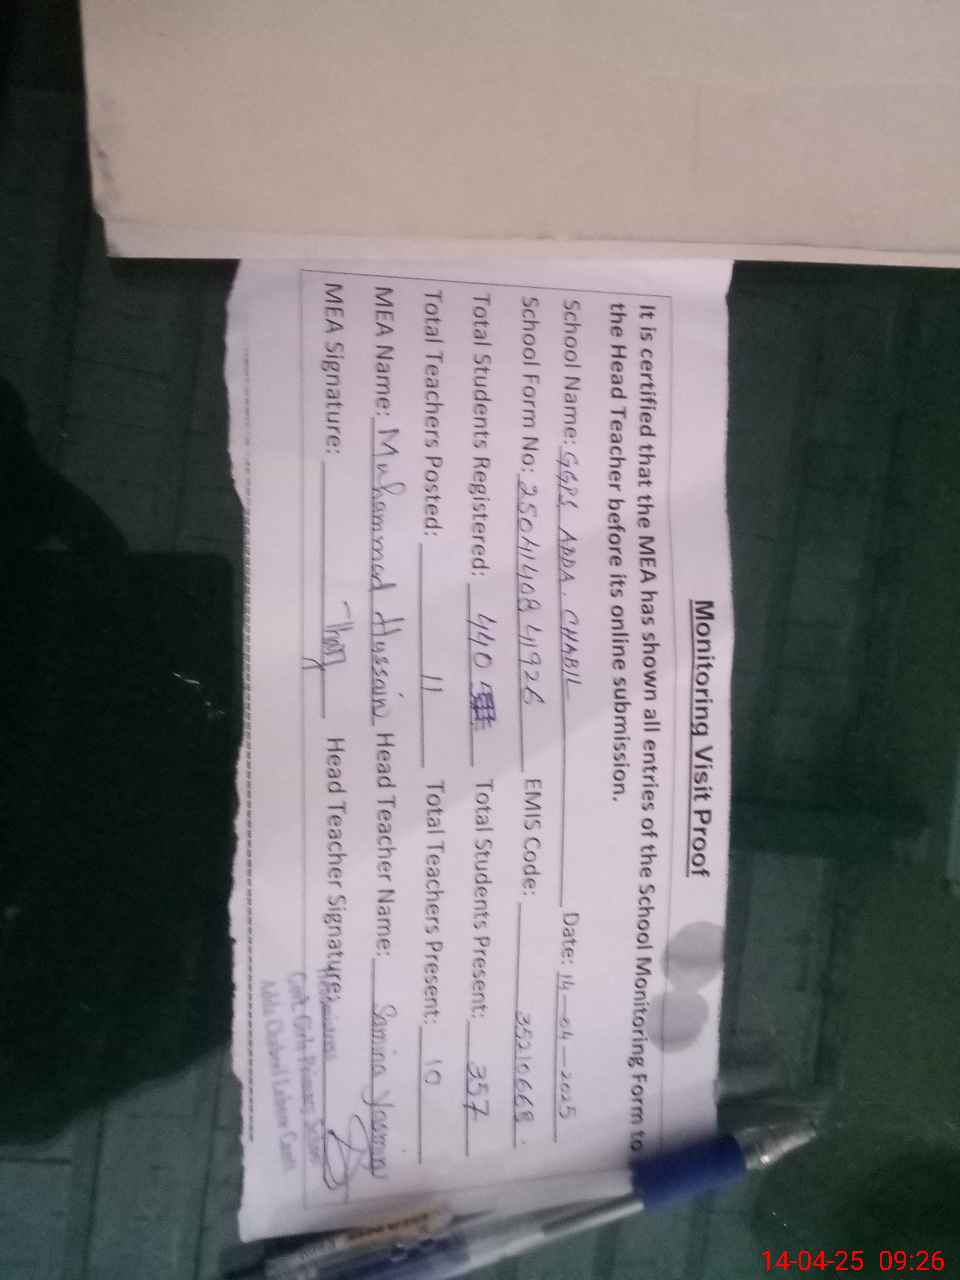 Monitoring Visit Proof
It is certified that the MEA has shown all entries of the School Monitoring Form to
the Head Teacher before its online submission.
School Name: GGPS ADDA. CHABIL Date: 14-04-2025
School Form No: 25041408 41926 EMIS Code: 35210668.
Total Students Registered: 440 Total Students Present: 357
Total Teachers Posted: 11 Total Teachers Present: 10
MEA Name: Muhammad Hussain Head Teacher Name: Samina Yasmin
MEA Signature: Head Teacher Signature:
Govt. Girls Primary School
Adda Chabeel Lahore Cantt
14-04-25 09:26